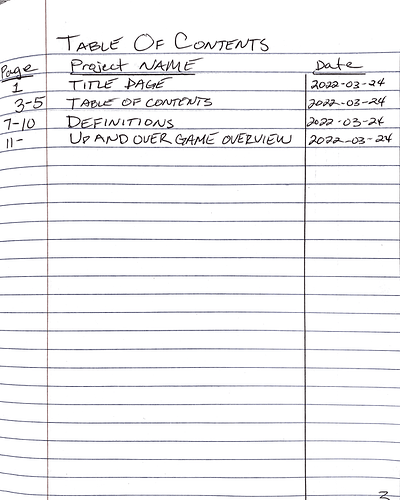 TABLE OF CONTENTS
Page Project NAME Date
1 TITLE PAGE 2022-03-24
3-5 TABLE OF CONTENTS 2022-03-24
7-10 DEFINITIONS 2022-03-24
11- UP AND OVER GAME OVERVIEW 2022-03-24
3